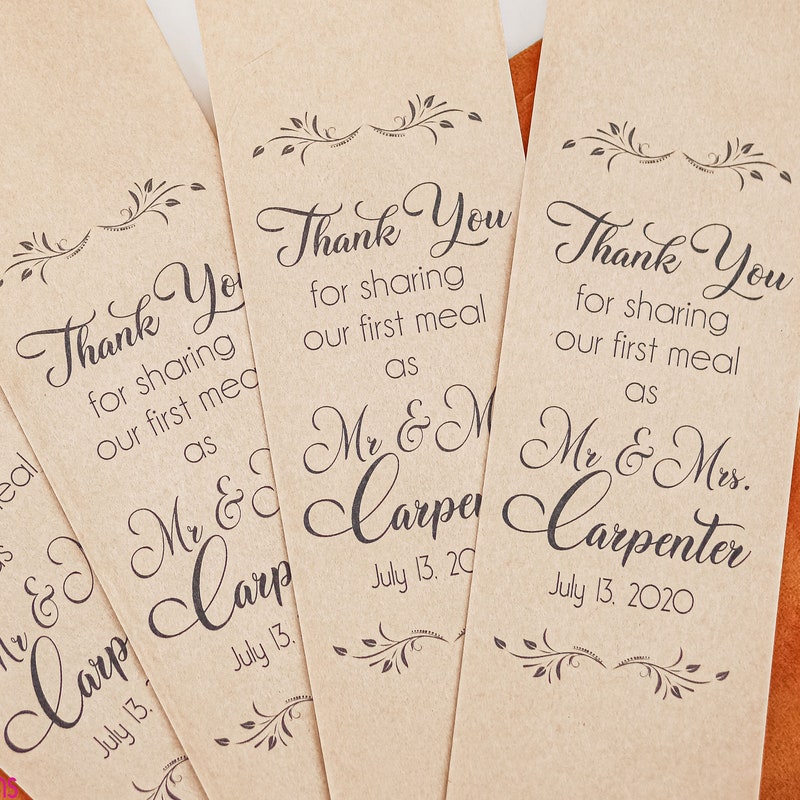 eal
as
Mr & M
Carp
July 13,
Thank You
for sharing
our first mea
as
Mr & M
Carp
July 13,
Thank You
for sharing
our first meal
as
Mr & M
Carpen
July 13, 20
Thank You
for sharing
our first meal
as
Mr & Mrs.
Carpenter
July 13, 2020